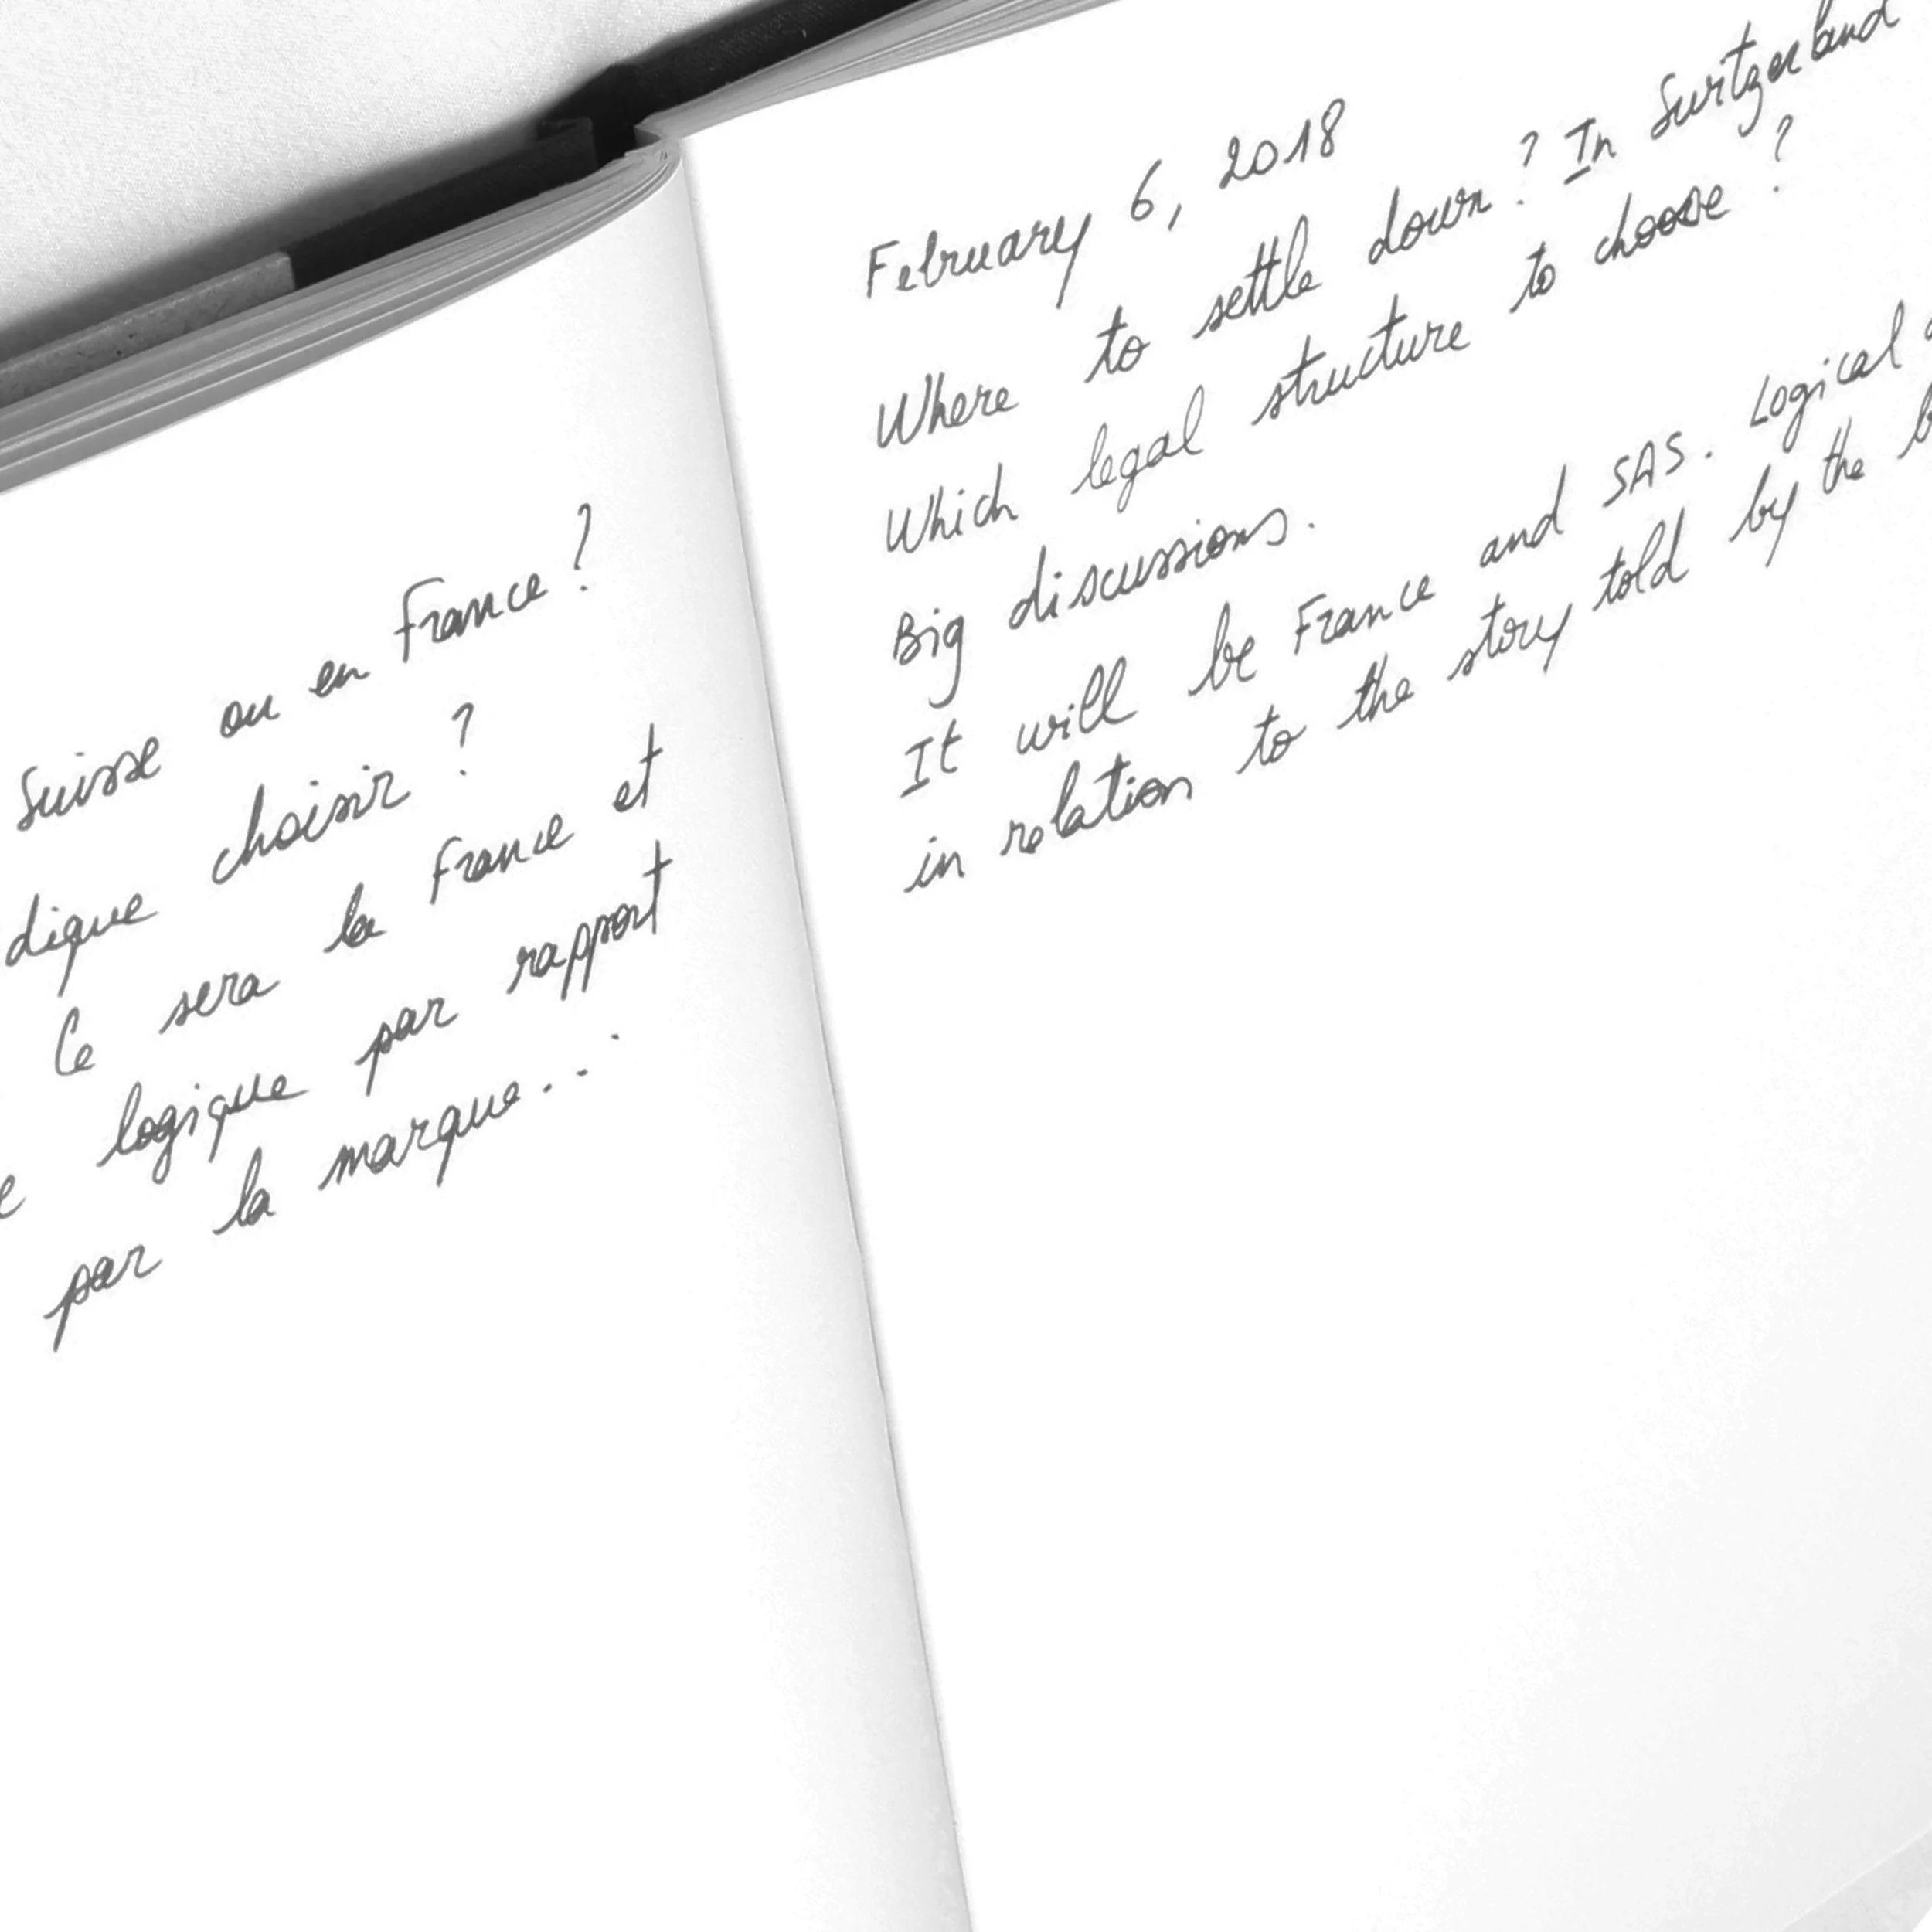 Suisse ou en France ?
dique choisir ?
Ce sera la France et
logique par rapport
par la marque...
February 6, 2018
Where to settle down ? In Switzerland
Which legal structure to choose ?
Big discussions.
It will be France and SAS. Logical
in relation to the story told by the